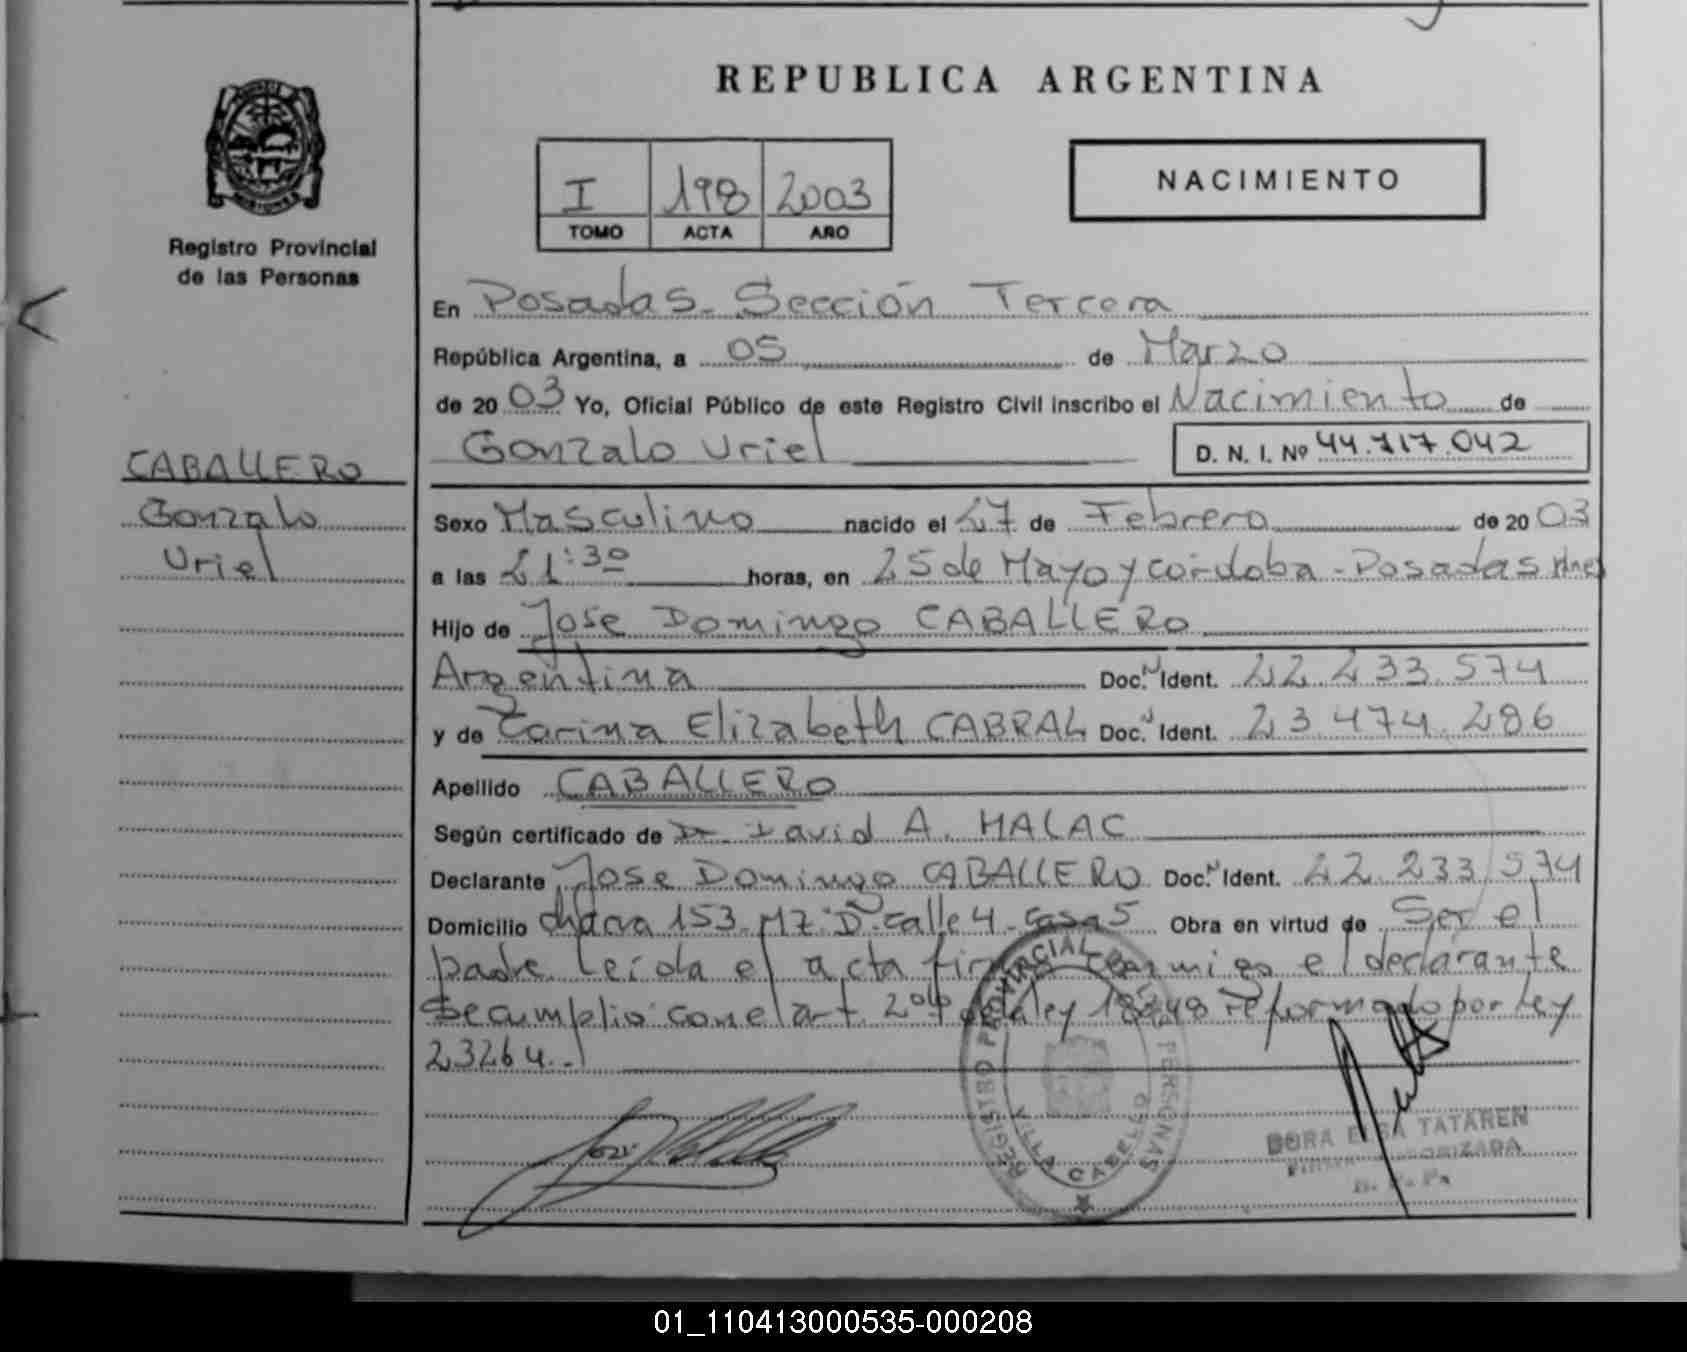 REPUBLICA ARGENTINA
I 198 2003
TOMO ACTA AÑO
NACIMIENTO
Registro Provincial
de las Personas
En Posadas - Sección Tercera
República Argentina, a 05 de Marzo
de 2003 Yo, Oficial Público de este Registro Civil inscribo el Nacimiento de
Gonzalo Uriel D. N. I. Nº 44.717.042
CABALLERO
Gonzalo
Uriel
Sexo Masculino nacido el 27 de Febrero de 2003
a las 21:30 horas, en 25 de Mayo y córdoba - Posadas Mnes
Hijo de Jose Domingo CABALLERO
Argentina Doc. Ident. 22.233.574
y de Carina Elizabeth CABRAL Doc. Ident. 23.474.286
Apellido CABALLERO
Según certificado de Dr. David A. MALAC
Declarante Jose Domingo CABALLERO Doc. Ident. 22.233.574
Domicilio chacra 153 - MZ: D - calle 4 - casa 5 Obra en virtud de Ser el
padre leída el acta firma conmigo el declarante
Se cumplio con el art. 2º de la ley 18248 reformado por ley
23264.-
REGISTRO PROVINCIAL DE LAS PERSONAS
VILLA CABELLO
DORA ELSA TATAREN
FIRMA AUTORIZADA
R. P. P.
01_110413000535-000208